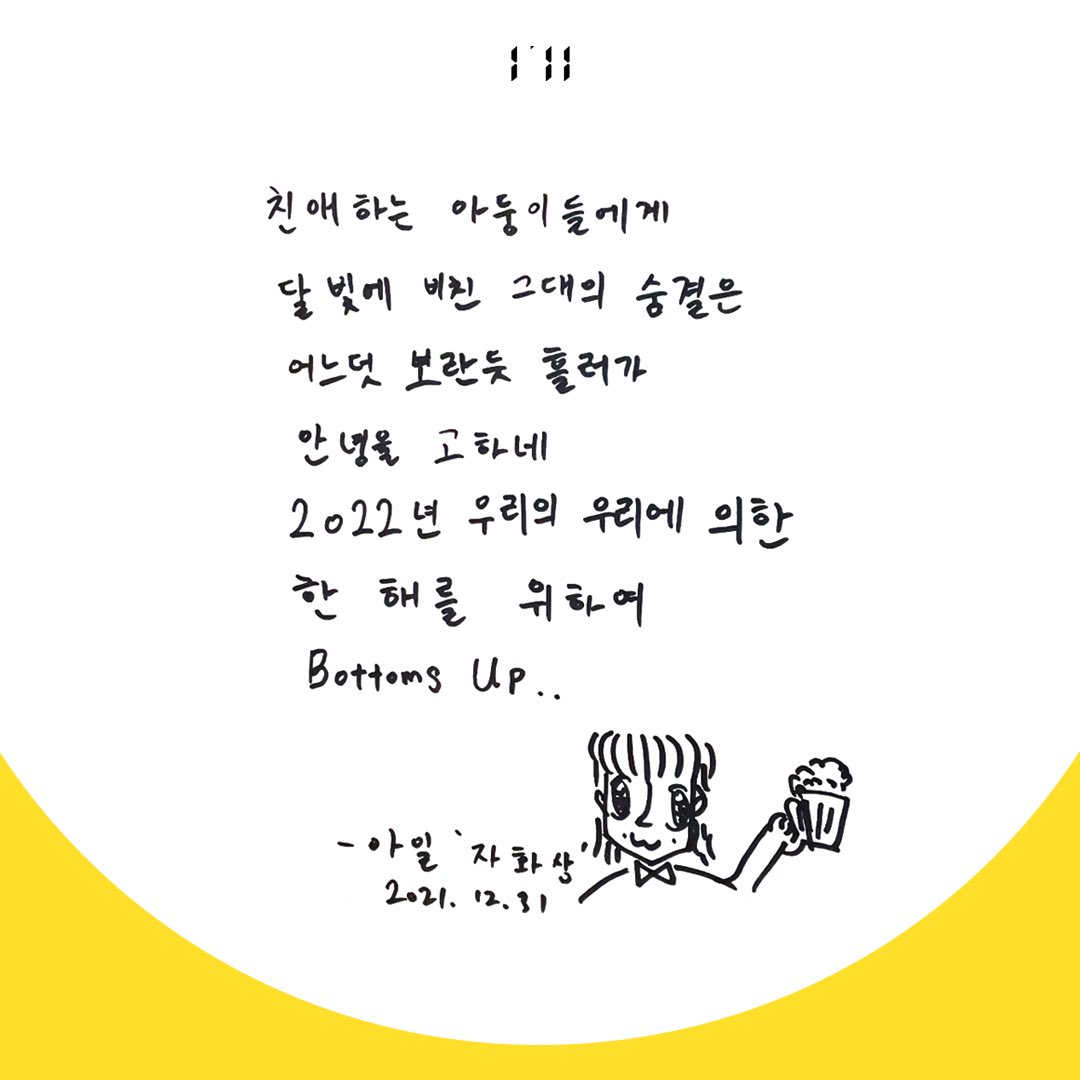 I'll
친애하는 아둥이들에게
달빛에 비친 그대의 숨결은
어느덧 보란듯 흘러가
안녕을 고하네
2022년 우리의 우리에 의한
한 해를 위하여
Bottoms Up..
- 아일 '자화상'
2021. 12. 31